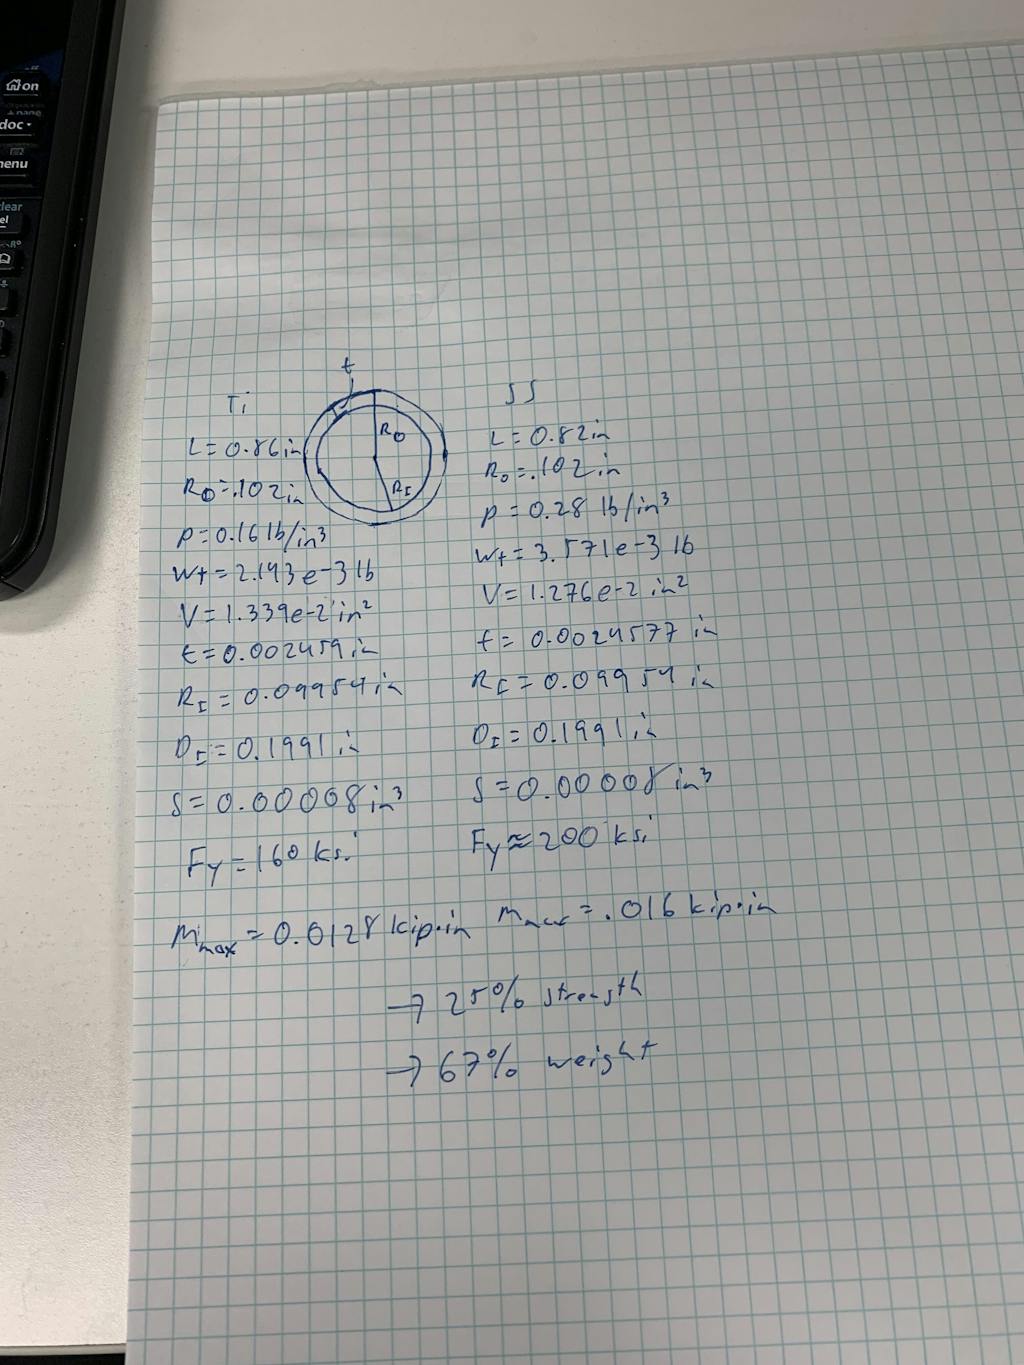 on
doc
menu
t
Ti
SS
R₀
R_I
L = 0.86 in
R₀ = .102 in
ρ = 0.16 lb/in³
Wt = 2.143 e-3 lb
V = 1.339e-2 in²
t = 0.002459 in
R_I = 0.09954 in
D_I = 0.1991 in
S = 0.00008 in³
F_y = 160 ksi
M_max = 0.0128 kip·in
L = 0.82 in
R₀ = .102 in
ρ = 0.28 lb/in³
Wt = 3.571e-3 lb
V = 1.276e-2 in²
t = 0.0024577 in
R_I = 0.09954 in
D_I = 0.1991 in
S = 0.00008 in³
F_y ≈ 200 ksi
M_max = .016 kip·in
→ 25% strength
→ 67% weight